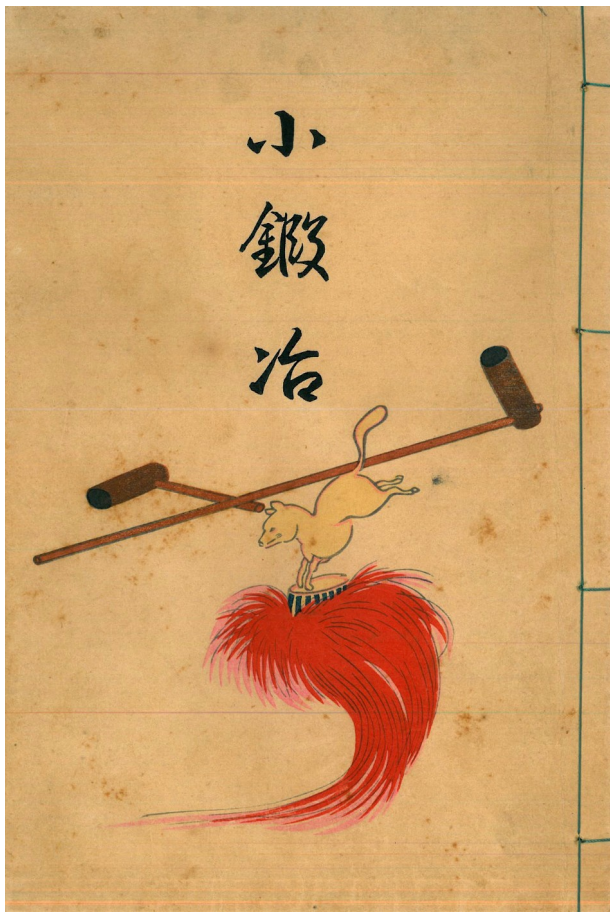 小鍛冶